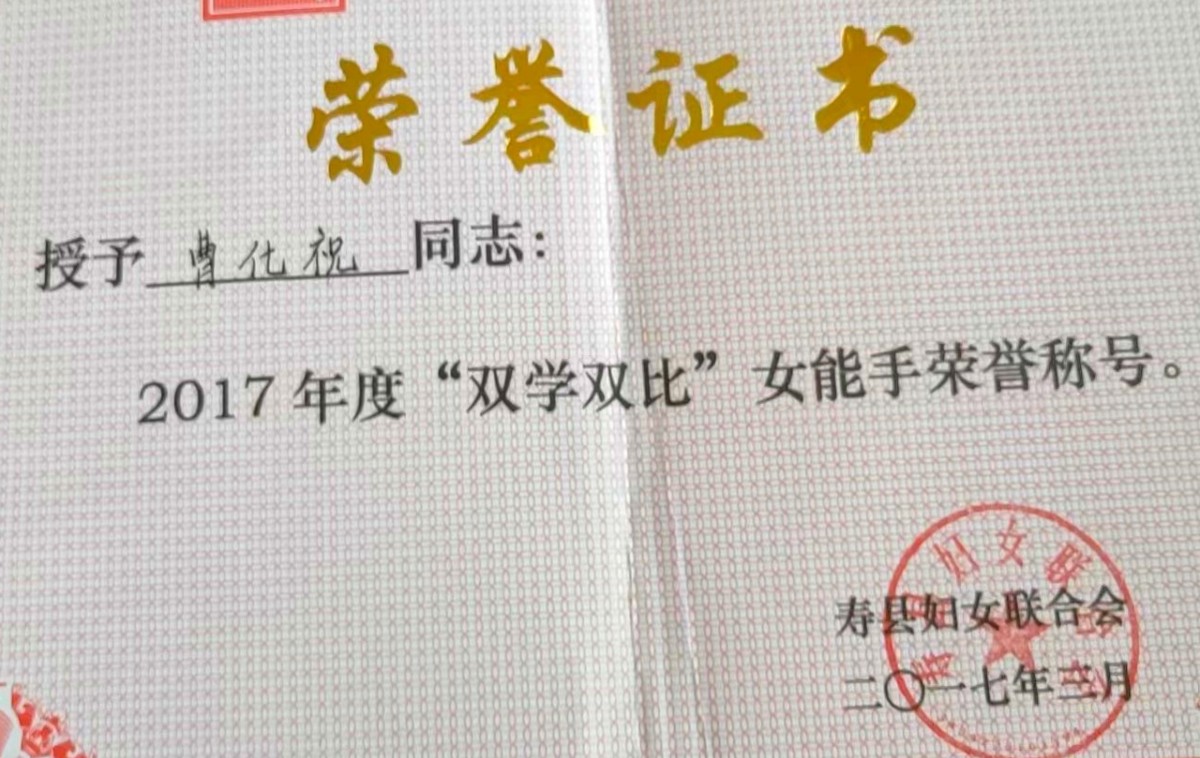 荣誉证书
授予 曹化祝 同志：
2017年度“双学双比”女能手荣誉称号。
寿县妇女联合会
二〇一七年三月
寿县妇女联合会